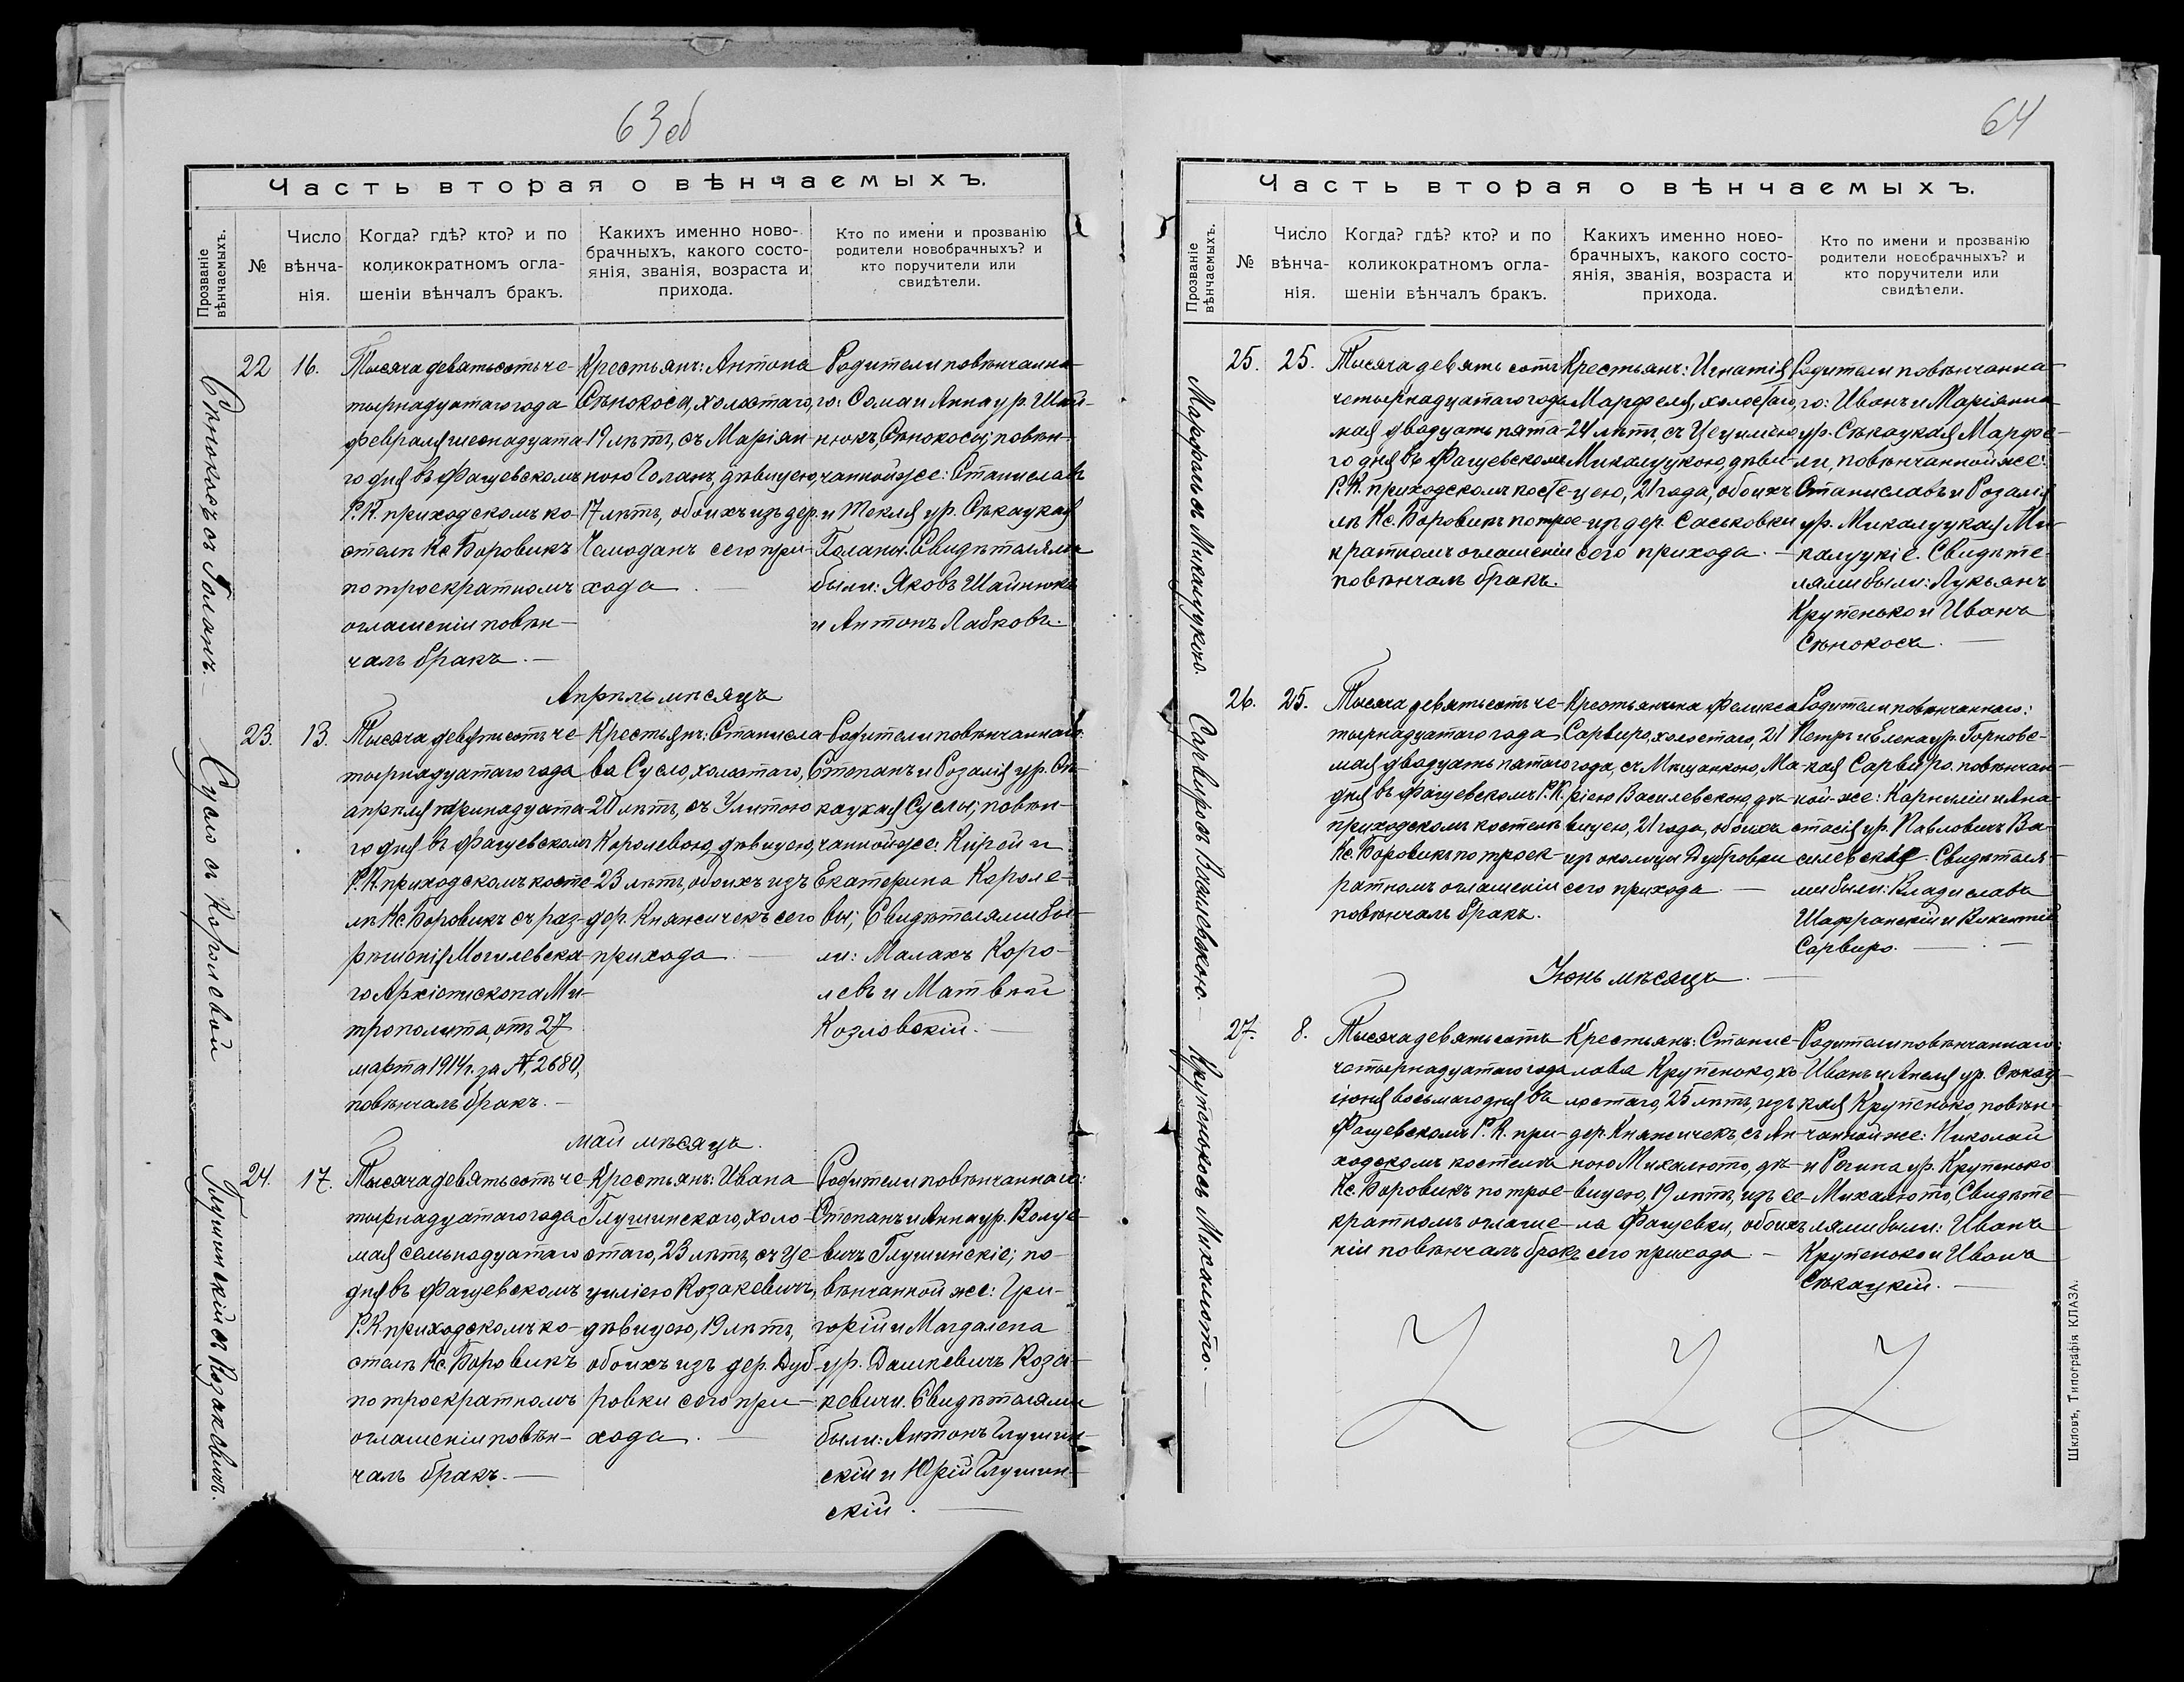 63 об
Часть вторая о вѣнчаемыхъ.
Прозваніе вѣнчаемыхъ.
№
Число вѣнча-нія.
Когда? гдѣ? кто? и по коликократномъ огла-шеніи вѣнчалъ бракъ.
Какихъ именно ново-брачныхъ, какого состо-янія, званія, возраста и прихода.
Кто по имени и прозванію родители новобрачныхъ? и кто поручители или свидѣтели.
Сѣнокосъ съ Голанъ.
22
16.
Тысяча девятьсотъ че-
тырнадцатаго года
февраля шеснадцата-
го дня въ Фащевскомъ
Р. К. приходскомъ ко-
стелѣ Кс. Боровикъ
по троекратномъ
оглашеніи повѣн-
чалъ бракъ.
Крестьянъ: Антона
Сѣнокоса, холостаго,
19 лѣтъ, съ Маріан-
ною Голанъ, дѣвицею,
17 лѣтъ, обоихъ изъ дер.
Чемоданъ сего при-
хода
Родители повѣнчанна-
го: Сома и Анна ур. Шай-
нюкъ, Сѣнокосы; повѣн-
чанной же: Станиславъ
и Текля ур. Сѣкацкая
Голаны. Свидѣтелями
были: Яковъ Шайнюкъ
и Антонъ Лабковъ.
Апрѣль мѣсяцъ
Сусло съ Королевой
23.
13.
Тысяча девятьсотъ че-
тырнадцатаго года
апрѣля тринадцата-
го дня въ Фащевскомъ
Р. К. приходскомъ косте-
лѣ Кс. Боровикъ съ раз-
рѣшенія Могилевска-
го Архіепископа Ми-
трополита, отъ 27
марта 1914 г. за № 2680,
повѣнчалъ бракъ.
Крестьянъ: Станисла-
ва Сусло, холостаго,
20 лѣтъ, съ Улитою
Королевою, дѣвицею,
23 лѣтъ, обоихъ изъ
дер. Княжичекъ сего
прихода
Родители повѣнчаннаго:
Степанъ и Розалія ур. Сѣ-
кацкая Суслы; повѣн-
чанной же: Кирей и
Екатерина Короле-
вы; Свидѣтелями бы-
ли: Малахъ Коро-
левъ и Матвѣй
Козловскій.
май мѣсяцъ.
Глушинскій съ Козакевичъ.
24.
17.
Тысяча девятьсотъ че-
тырнадцатаго года
мая семьнадцатаго
дня въ Фащевскомъ
Р. К. приходскомъ ко-
стелѣ Кс. Боровикъ
по троекратномъ
оглашеніи повѣн-
чалъ бракъ.
Крестьянъ: Ивана
Глушинскаго, холо-
стаго, 23 лѣтъ, съ Це-
циліею Козакевичъ,
дѣвицею, 19 лѣтъ,
обоихъ изъ дер. Дуб-
ровки сего при-
хода.
Родители повѣнчаннаго:
Степанъ и Анна ур. Волуе-
вичъ Глушинскіе; по-
вѣнчанной же: Гри-
горій и Магдалена
ур. Дашкевичъ Коза-
кевичи. Свидѣтелями
были: Антонъ Глушин-
скій и Юрій Глушин-
скій.
64
Часть вторая о вѣнчаемыхъ.
Прозваніе вѣнчаемыхъ.
№
Число вѣнча-нія.
Когда? гдѣ? кто? и по коликократномъ огла-шеніи вѣнчалъ бракъ.
Какихъ именно ново-брачныхъ, какого состо-янія, званія, возраста и прихода.
Кто по имени и прозванію родители новобрачныхъ? и кто поручители или свидѣтели.
Марфель съ Микалуцкою.
25.
25.
Тысяча девять сотъ
четырнадцатаго года
мая двадцать пята-
го дня въ Фащевскомъ
Р. К. приходскомъ косте-
лѣ Кс. Боровикъ по трое-
кратномъ оглашеніи
повѣнчалъ бракъ.
Крестьянъ: Игнатія
Марфеля, холостаго,
24 лѣтъ, съ Цециліею
Микалуцкою, дѣви-
цею, 21 года, обоихъ
из дер. Саськовки
сего прихода.
Родители повѣнчанна-
го: Иванъ и Маріанна
ур. Сѣкацкая Марфе-
ли, повѣнчанной же:
Станиславъ и Розалія
ур. Микалуцкая Ми-
калуцкіе. Свидѣте-
лями были: Лукьянъ
Крупенько и Иванъ
Сѣнокосъ.
Сарвиро съ Василевскою.
26.
25.
Тысяча девятьсотъ че-
тырнадцатаго года
мая двадцать пятаго
дня въ Фащевскомъ Р. К.
приходскомъ костелѣ
Кс. Боровикъ по троек-
ратномъ оглашеніи
повѣнчалъ бракъ.
Крестьянина Феликса
Сарвиро, холостаго, 21
года, съ Мѣщанкою, Ма-
ріею Василевскою, дѣ-
вицею, 21 года, обоихъ
из околицы Дубровки
сего прихода
Родители повѣнчаннаго:
Петръ и Елена ур. Горновс-
кая Сарвиро. повѣнчан-
ной-же: Карнилій и Ана-
стасія ур. Павловичъ Ва-
силевскіе. Свидѣтеля-
ми были: Владиславъ
Шафранскій и Викентій
Сарвиро.
Іюнь мѣсяцъ.
Крупенько съ Михалюто.
27.
8.
Тысяча девятьсотъ
четырнадцатаго года
іюня восьмаго дня въ
Фащевскомъ Р. К. при-
ходскомъ костелѣ
Кс. Боровикъ по трое-
кратномъ оглаше-
ніи повѣнчалъ бракъ
Крестьянъ: Станис-
лава Крупенько, хо-
лостаго, 25 лѣтъ, изъ
дер. Княжичекъ, съ Ан-
ною Михалюто, дѣ-
вицею, 19 лѣтъ, изъ се-
ла Фащевки, обоихъ
сего прихода.
Родители повѣнчаннаго:
Иванъ и Анеля ур. Сѣкац-
кая Крупенько, повѣн-
чанной же: Николай
и Регина ур. Крупенько
Михалюто, Свидѣте-
лями были: Иванъ
Крупенько и Иванъ
Сѣкацкій.
Шкловъ, Типографія КЛАЗА.